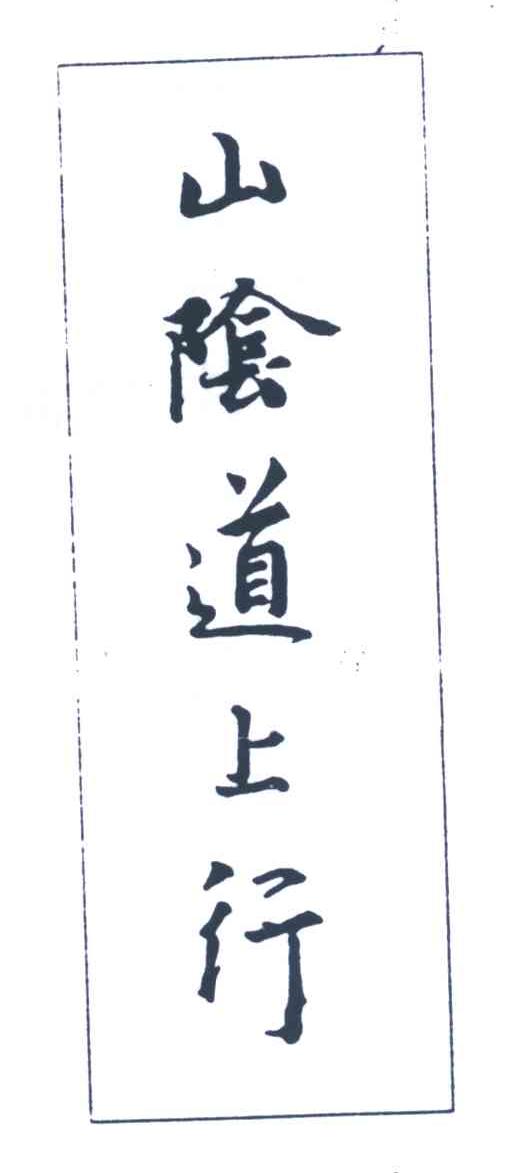 山陰道上行